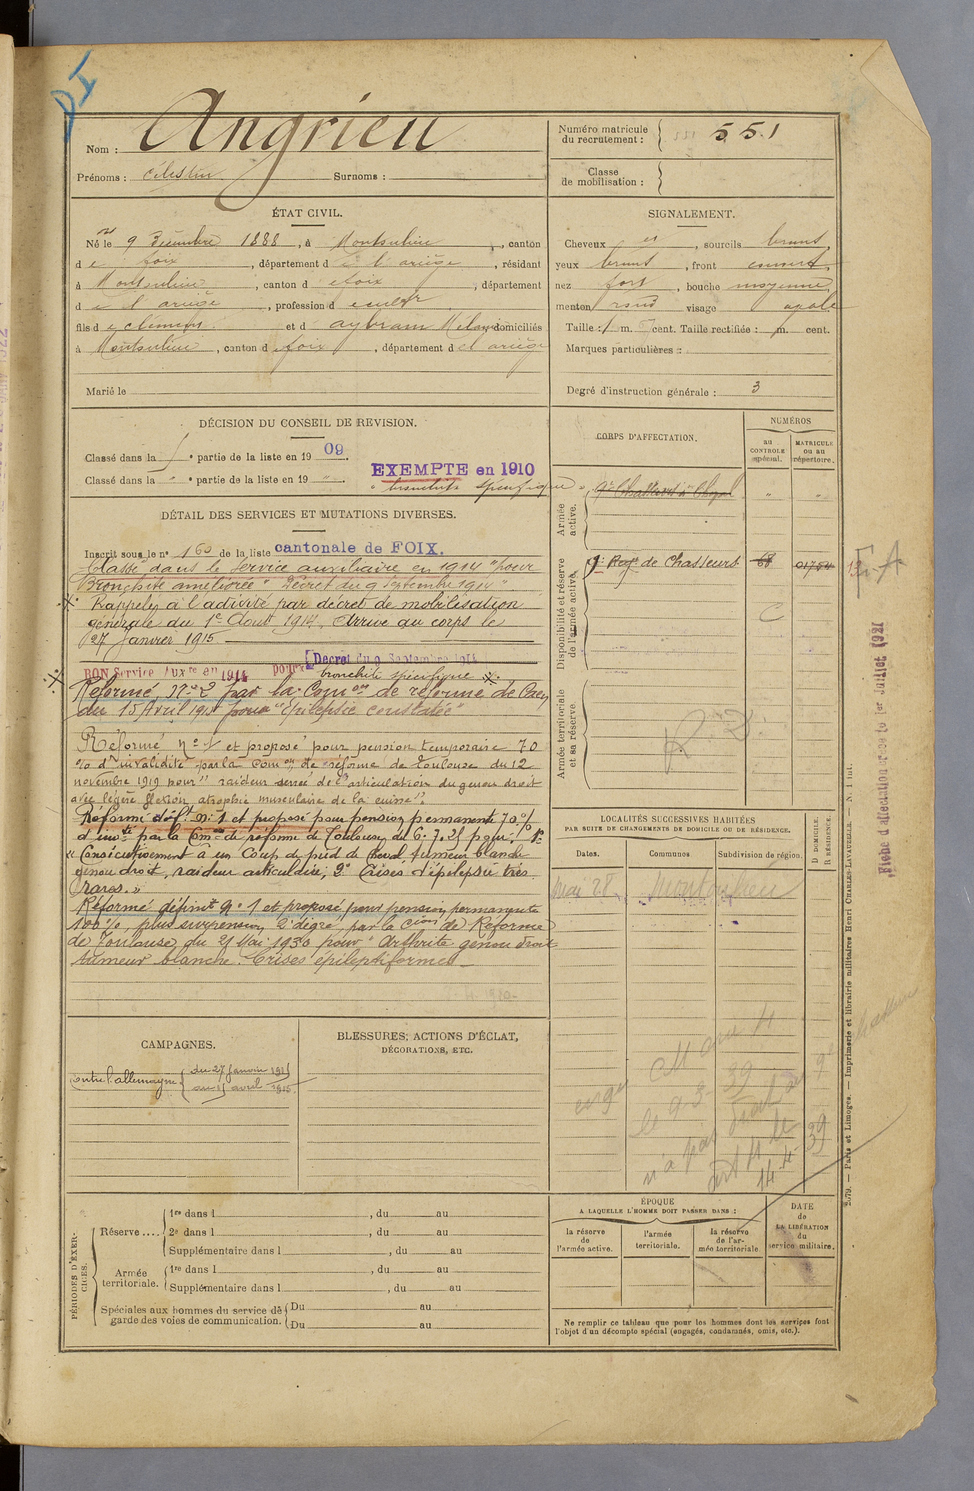 DI
Nom : Angrieu
Prénoms : Célestin Surnoms :
Numéro matricule du recrutement : 551
Classe de mobilisation :
ÉTAT CIVIL.
Né le 9 Décembre 1888, à Montoulieu, canton
de foix, département de l'ariège, résidant
à Montoulieu, canton de foix, département
de l'ariège, profession de cultr
fils de clément et d' aybram Mélanie domiciliés
à Montoulieu, canton de foix, département de l'ariège
Marié le
SIGNALEMENT.
Cheveux , sourcils bruns
yeux bruns, front couvert,
nez fort, bouche moyenne,
menton rond visage ovale
Taille : 1 m. cent. Taille rectifiée : m. cent.
Marques particulières :
Degré d'instruction générale : 3
DÉCISION DU CONSEIL DE REVISION.
Classé dans la e partie de la liste en 1909.
Classé dans la " e partie de la liste en 19 "
EXEMPTE en 1910
" bronchite spécifique "
DÉTAIL DES SERVICES ET MUTATIONS DIVERSES.
Inscrit sous le n° 160 de la liste cantonale de FOIX.
Classé dans le Service auxiliaire en 1914 "pour
Bronchite améliorée" Décret du 9 Septembre 1914"
Rappelé à l'activité par décret de mobilisation
générale du 1er Août 1914. Arrivé au corps le
27 Janvier 1915
BON Service Auxre en 1914 pour Décret du 9 Septembre 1914
bronchite spécifique
Réformé N° 2 par la Comon de réforme de
du 15 Avril 1915 pour "Epilepsie constatée"
Réformé N° 1 et proposé pour pension temporaire 70
% d'invalidité par la Comon de réforme de Toulouse du 12
novembre 1919 pour " raideur serrée de l'articulation du genou droit
avec légère flexion, atrophie musculaire de la cuisse".
Réformé déf. N° 1 et proposé pour pension permanente 70%
d'invté par la Comon de réforme de Toulouse du 6.7.21 pour : 1°
" Consécutivement à un Coup de pied de cheval, tumeur blanche
genou droit, raideur articulaire, 2° Crises d'épilepsie très
rares. "
Réformé définit n° 1 et proposé pour pension permanente
100%, plus surpension 2e degré, par la Cion de Réforme
de Toulouse du 21 Mai 1930 pour " Arthrite genou droit
tumeur blanche. Crises épileptiformes
CORPS D'AFFECTATION.
NUMÉROS
au CONTROLE spécial.
MATRICULE ou au répertoire.
Armée active.
9e Chasseurs à Cheval " "
Disponibilité et réserve de l'armée active.
9e Rgt de Chasseurs 68 01784
C
Armée territoriale et sa réserve.
R.D.
LOCALITÉS SUCCESSIVES HABITÉES
PAR SUITE DE CHANGEMENTS DE DOMICILE OU DE RÉSIDENCE.
Dates. Communes. Subdivision de région. D. DOMICILE. R. RÉSIDENCE.
Mai 28. Montoulieu
le 9-3-39
n'a pas droit au
art 4 le
14-4-39
CAMPAGNES.
contre l'allemagne du 27 Janvier 1915
au 15 avril 1915
BLESSURES, ACTIONS D'ÉCLAT,
DÉCORATIONS, ETC.
PÉRIODES D'EXERCICES.
Réserve....
1re dans l , du au
2e dans l , du au
Supplémentaire dans l , du au
Armée territoriale.
1re dans l , du au
Supplémentaire dans l , du au
Spéciales aux hommes du service de garde des voies de communication.
Du au
Du au
ÉPOQUE
A LAQUELLE L'HOMME DOIT PASSER DANS :
la réserve de l'armée active.
l'armée territoriale.
la réserve de l'armée territoriale
DATE de LA LIBÉRATION du service militaire.
Ne remplir ce tableau que pour les hommes dont les services font
l'objet d'un décompte spécial (engagés, condamnés, omis, etc.).
Fiche d'affectation créée le 1er Juillet 1921
Paris et Limoges. — Imprimerie et librairie militaires Henri CHARLES-LAVAUZELLE. — N. 1 int.